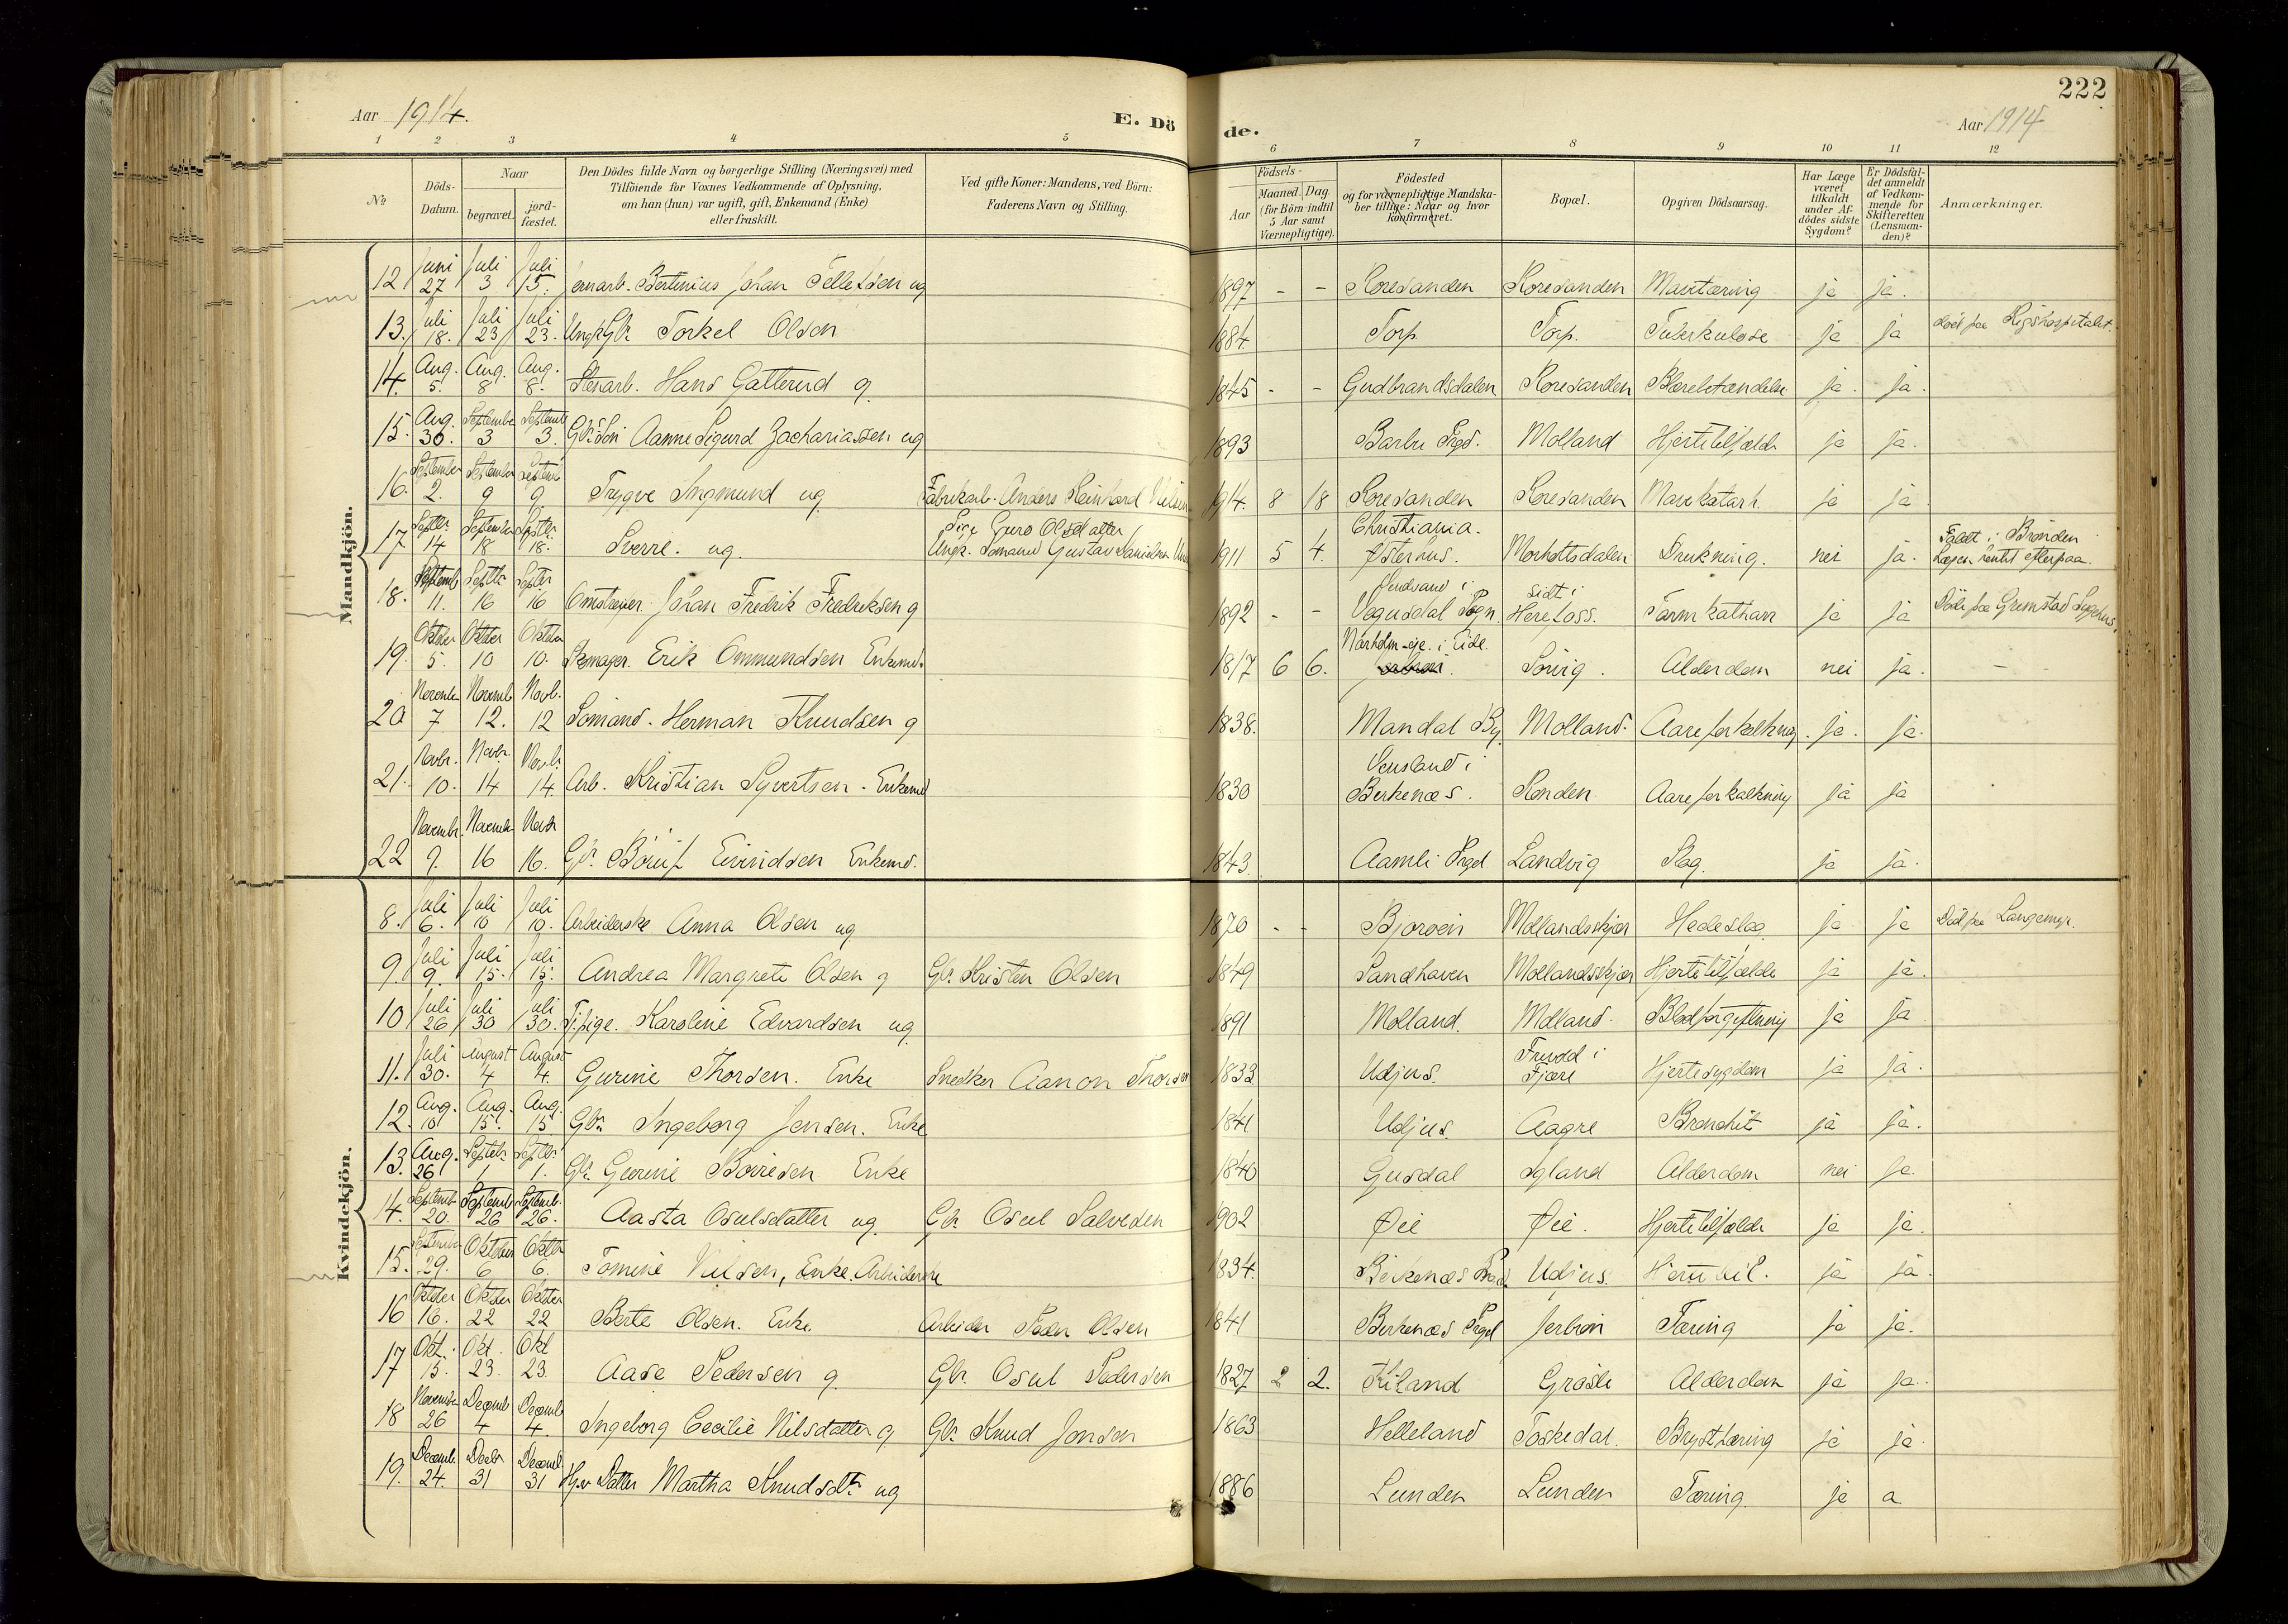 222
Aar 1914.
E. Dö de.
Aar 1914
1 2 3 4 5 6 7 8 9 10 11 12
No.
Döds-Datum.
Naar
begravet.
jord-fæstet.
Den Dödes fulde Navn og borgerlige Stilling (Næringsvei) med
Tilföiende for Voxnes Vedkommende af Oplysning,
om han (hun) var ugift, gift, Enkemand (Enke)
eller fraskilt.
Ved gifte Koner: Mandens, ved Börn:
Faderens Navn og Stilling.
Födsels-
Aar
Maaned. Dag.
(for Börn indtil
5 Aar samt
Værnepligtige).
Födested
og for værnepligtige Mandska-
ber tillige: Naar og hvor
konfirmeret.
Bopæl.
Opgiven Dödsaarsag.
Har Læge
været
tilkaldt
under Af-
dödes sidste
Sygdom?
Er Dödsfal-
det anmeldt
af Vedkom-
mende for
Skifteretten
(Lensman-
den)?
Anmærkninger.
Mandkjön.
12 Juni 27 Juli 3 Juli 5. Jernarb. Bertinius Johan Tellefsen ug 1897 - - Roresanden Roresanden Mavetæring ja ja.
13. Juli 18. Juli 23 Juli 23. Ungk. Gbr. Torkel Olson 1884. Torp Torp. Tuberkulose ja ja død paa Rigshospitalet.
14. Aug. 5. Aug. 8 Aug. 8. Stenarb. Hans Galterud g. 1845 - - Gudbrandsdalen Roresanden Blærebetændelse ja. ja.
15. Aug. 30. September 3 Septemb 3. Gbr. Søn Aanne Sigurd Zachariassen ug 1893 Barbu Prgd. Molland Hjertetilfælde ja ja.
16. September 2. September 9 Septemb 9. Trygve Ingmund ug Fabrikarb. Anders Reinhard 1914. 8 18 Roresanden Roresanden Mavekatarh. ja ja
17. Septbr. 14 September 18 Septbr. 18. Sverre. ug. Pige Guro Olsdatter
Ungk. Sømand Gustav Danielsen 1911 5 4. Christiania.
Østerhus. Morholtsdalen Drukning. nei ja. Faldt i Brønden
Lægen hentet efterpaa.
18. Septemb 11. Septbr 16 Septbr 16 Omstreifer Johan Fredrik Fredriksen g 1892 - - i
Vegusdal Sogn. sidst i
Herefoss. Tarmkatharr ja ja Døde paa Grimstad Sygehus.
19. Oktober 5. Oktober 10 Oktober 10. Skomager. Erik Ommundsen Enkemd. 1817 6 6. i Eide. Sørvig. Alderdom nei ja. -
20 November 7 Novemb 12. Novb. 12 Sømand. Herman Knudsen g 1838. Mandal By Molland. Aareforkalkning. ja. ja.
21. Novbr. 10. Novbr. 14 Novbr. 14. Arb. Kristian Syvertsen. Enkemd 1830 Vensland i
Birkenæs. Ronden. Aareforkalkning ja ja
22 Novembr. 9. November 16 Novbr 16. Gbr. Børuf Eivindsen Enkemd. 1843. Aamli Prgd Landvig Slag. ja ja.
Kvindekjön.
8. Juli 6. Juli 10 Juli 10. Arbeiderske Anna Olsen ug 1870 - - Bjorvein Mollandskjær Hedeslag ja ja Død paa Langemyr.
9. Juli 9. Juli 15. Juli 15. Andrea Margrete Olsen g Gbr. Kristen Olsen 1849 Sandhaven Mollandskjær Hjertetilfælde ja ja.
10 Juli 26 Juli 30 Juli 30. Tj.pige. Karoline Edvardsen ug 1891 Molland. Molland. Blodforgiftning ja ja
11. Juli 30. August 4 August 4. Gurine Thorsen. Enke Snedker Aanon Thorsen 1833 Udjus. i
Fjære Hjertesygdom ja ja.
12. Aug. 10 Aug. 15. Aug. 15. Gbr. Ingeborg Jensen. Enke 1841 Udjus. Aagre Bronchit ja ja.
13. Aug. 26 Septbr. 1 Septbr. 1. Gbr. Gurine Børresen Enke 1840 Gusdal Igland Alderdom nei ja.
14. Septemb. 20. Septemb 26 Septemb. 26. Aasta Osulsdatter ug Gbr Osul Salvesen 1902 Øie Øie. Hjertetilfælde ja ja.
15. September 29. Oktober 6 Oktbr 6. Tomine Nilsen, Enke. Arbeiderske 1834. Birkenæs Prgd. Udjus. ja ja.
16 Oktober 16. Oktober 22 Oktober 22 Berte Olsen. Enke Arbeider Peder Olsen 1841 Birkenæs Prgd Jerbon Tæring ja ja.
17 Okt. 15. Okt. 23. Okt 23. Aase Pedersen g. Gbr. Osul Pedersen 1827 2 2. Kiland Grøsle Alderdom ja ja.
18 November 26 Decemb 4 Decemb 4. Ingeborg Cecilie Nilsdatter g Gbr. Knud Jensen 1863 Helleland Toskedal. Brysttæring ja ja.
19. Decemb. 24. Decbr 31 Decemb 31 Hjv Datter Martha Knudsdtr. ug 1886 Lunden Lunden Tæring ja a